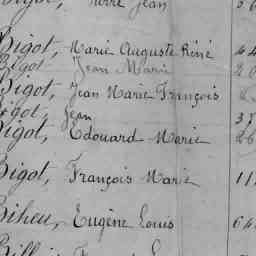 Pierre Jean
Bigot, Marie Auguste Réné 44
Bigot, Jean Marie
Bigot, Jean Marie François
Bigot, Jean 37
Bigot, Edouard Marie 26
Bigot, François Marie 11
Biheu, Eugène Louis 64